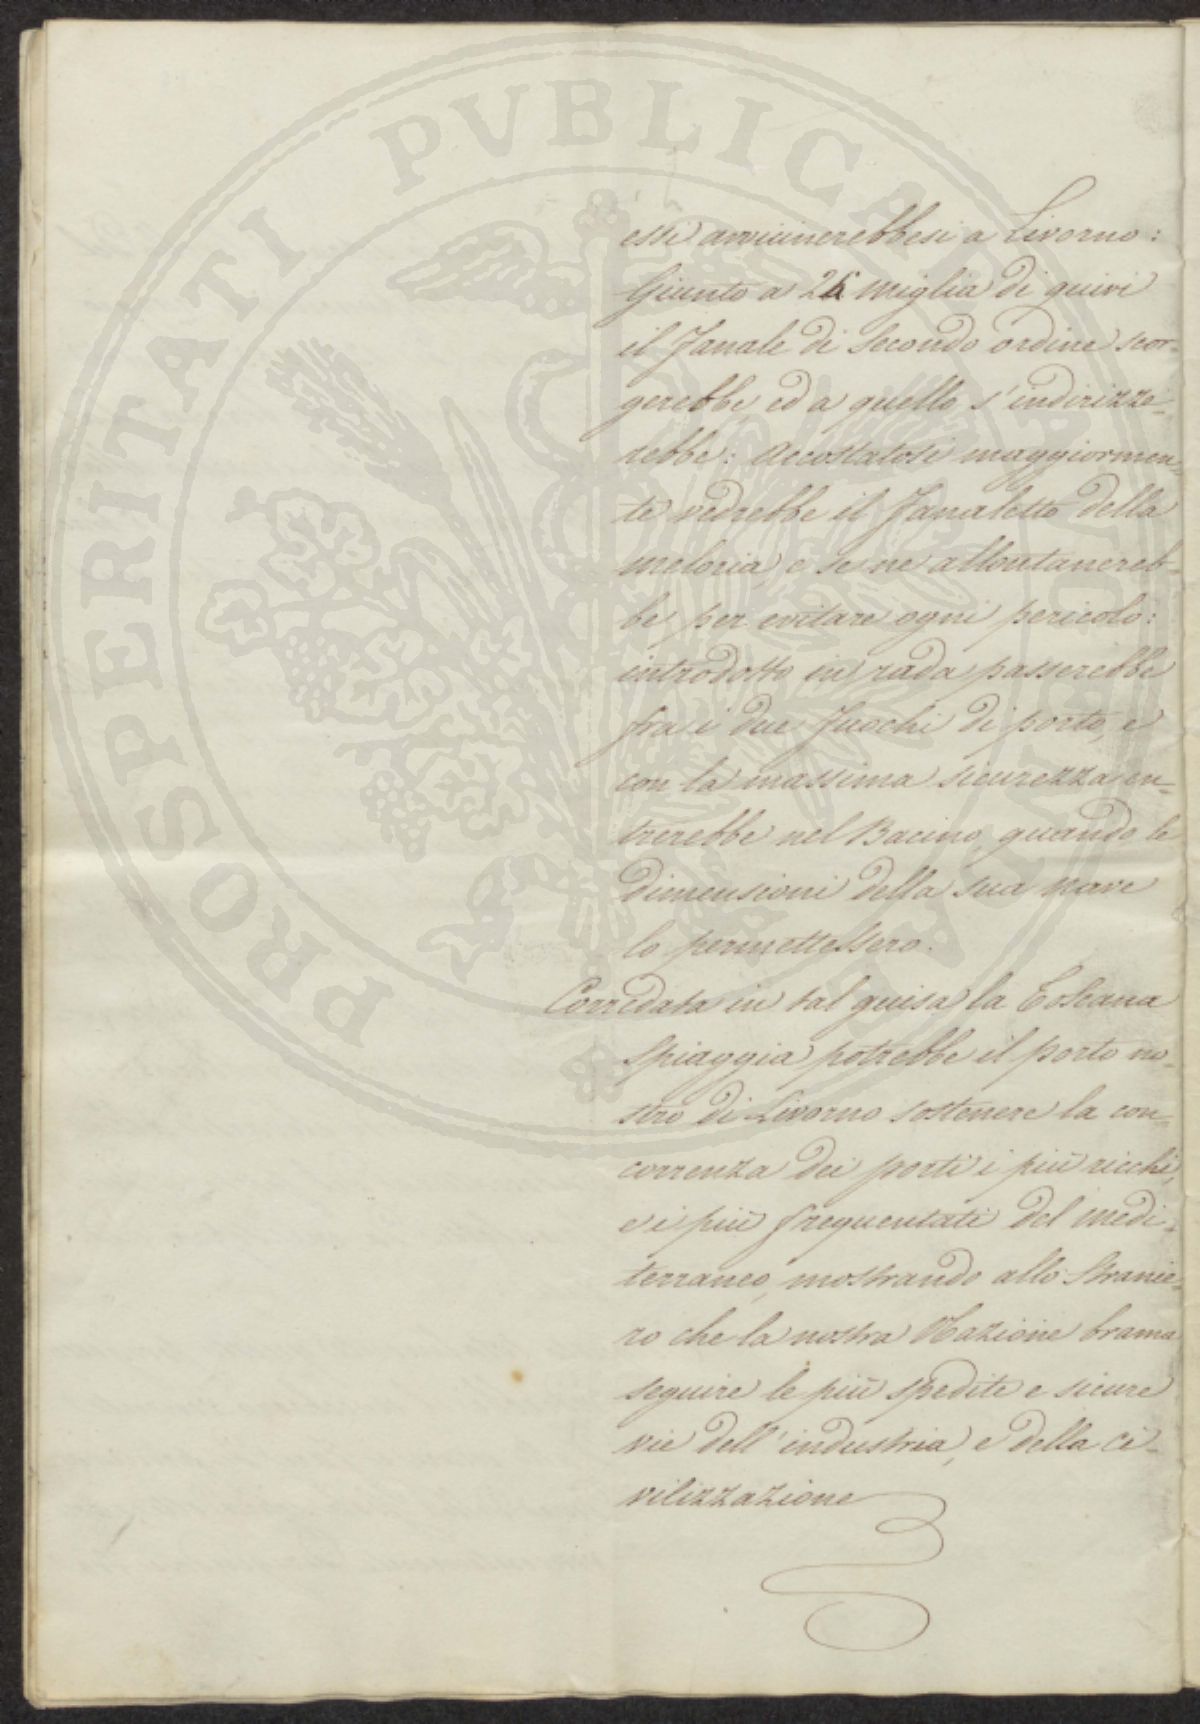 PROSPERITATI PVBLICAE
essi avvicinerebbesi a Livorno:
Giunto a 26 miglia di quivi
il Fanale di Secondo ordine scor-
gerebbe ed a quello s'indirizze-
rebbe: Accostatosi maggiormen-
te vedrebbe il Fanaletto della
meloria, e se ne allontanereb-
be per evitare ogni pericolo:
introdotto in rada passerebbe
fra i due fuochi di porto, e
con la massima sicurezza en-
trerebbe nel Bacino, quando le
dimensioni della sua nave
lo permettessero.
Corredata in tal guisa la Toscana
Spiaggia potrebbe il porto no-
stro di Livorno sostenere la con-
correnza dei porti i più ricchi,
e i più frequentati del medi-
terraneo, mostrando allo Stranie-
ro che la nostra Nazione brama
seguire le più spedite e sicure
vie dell'industria, e della ci-
vilizzazione